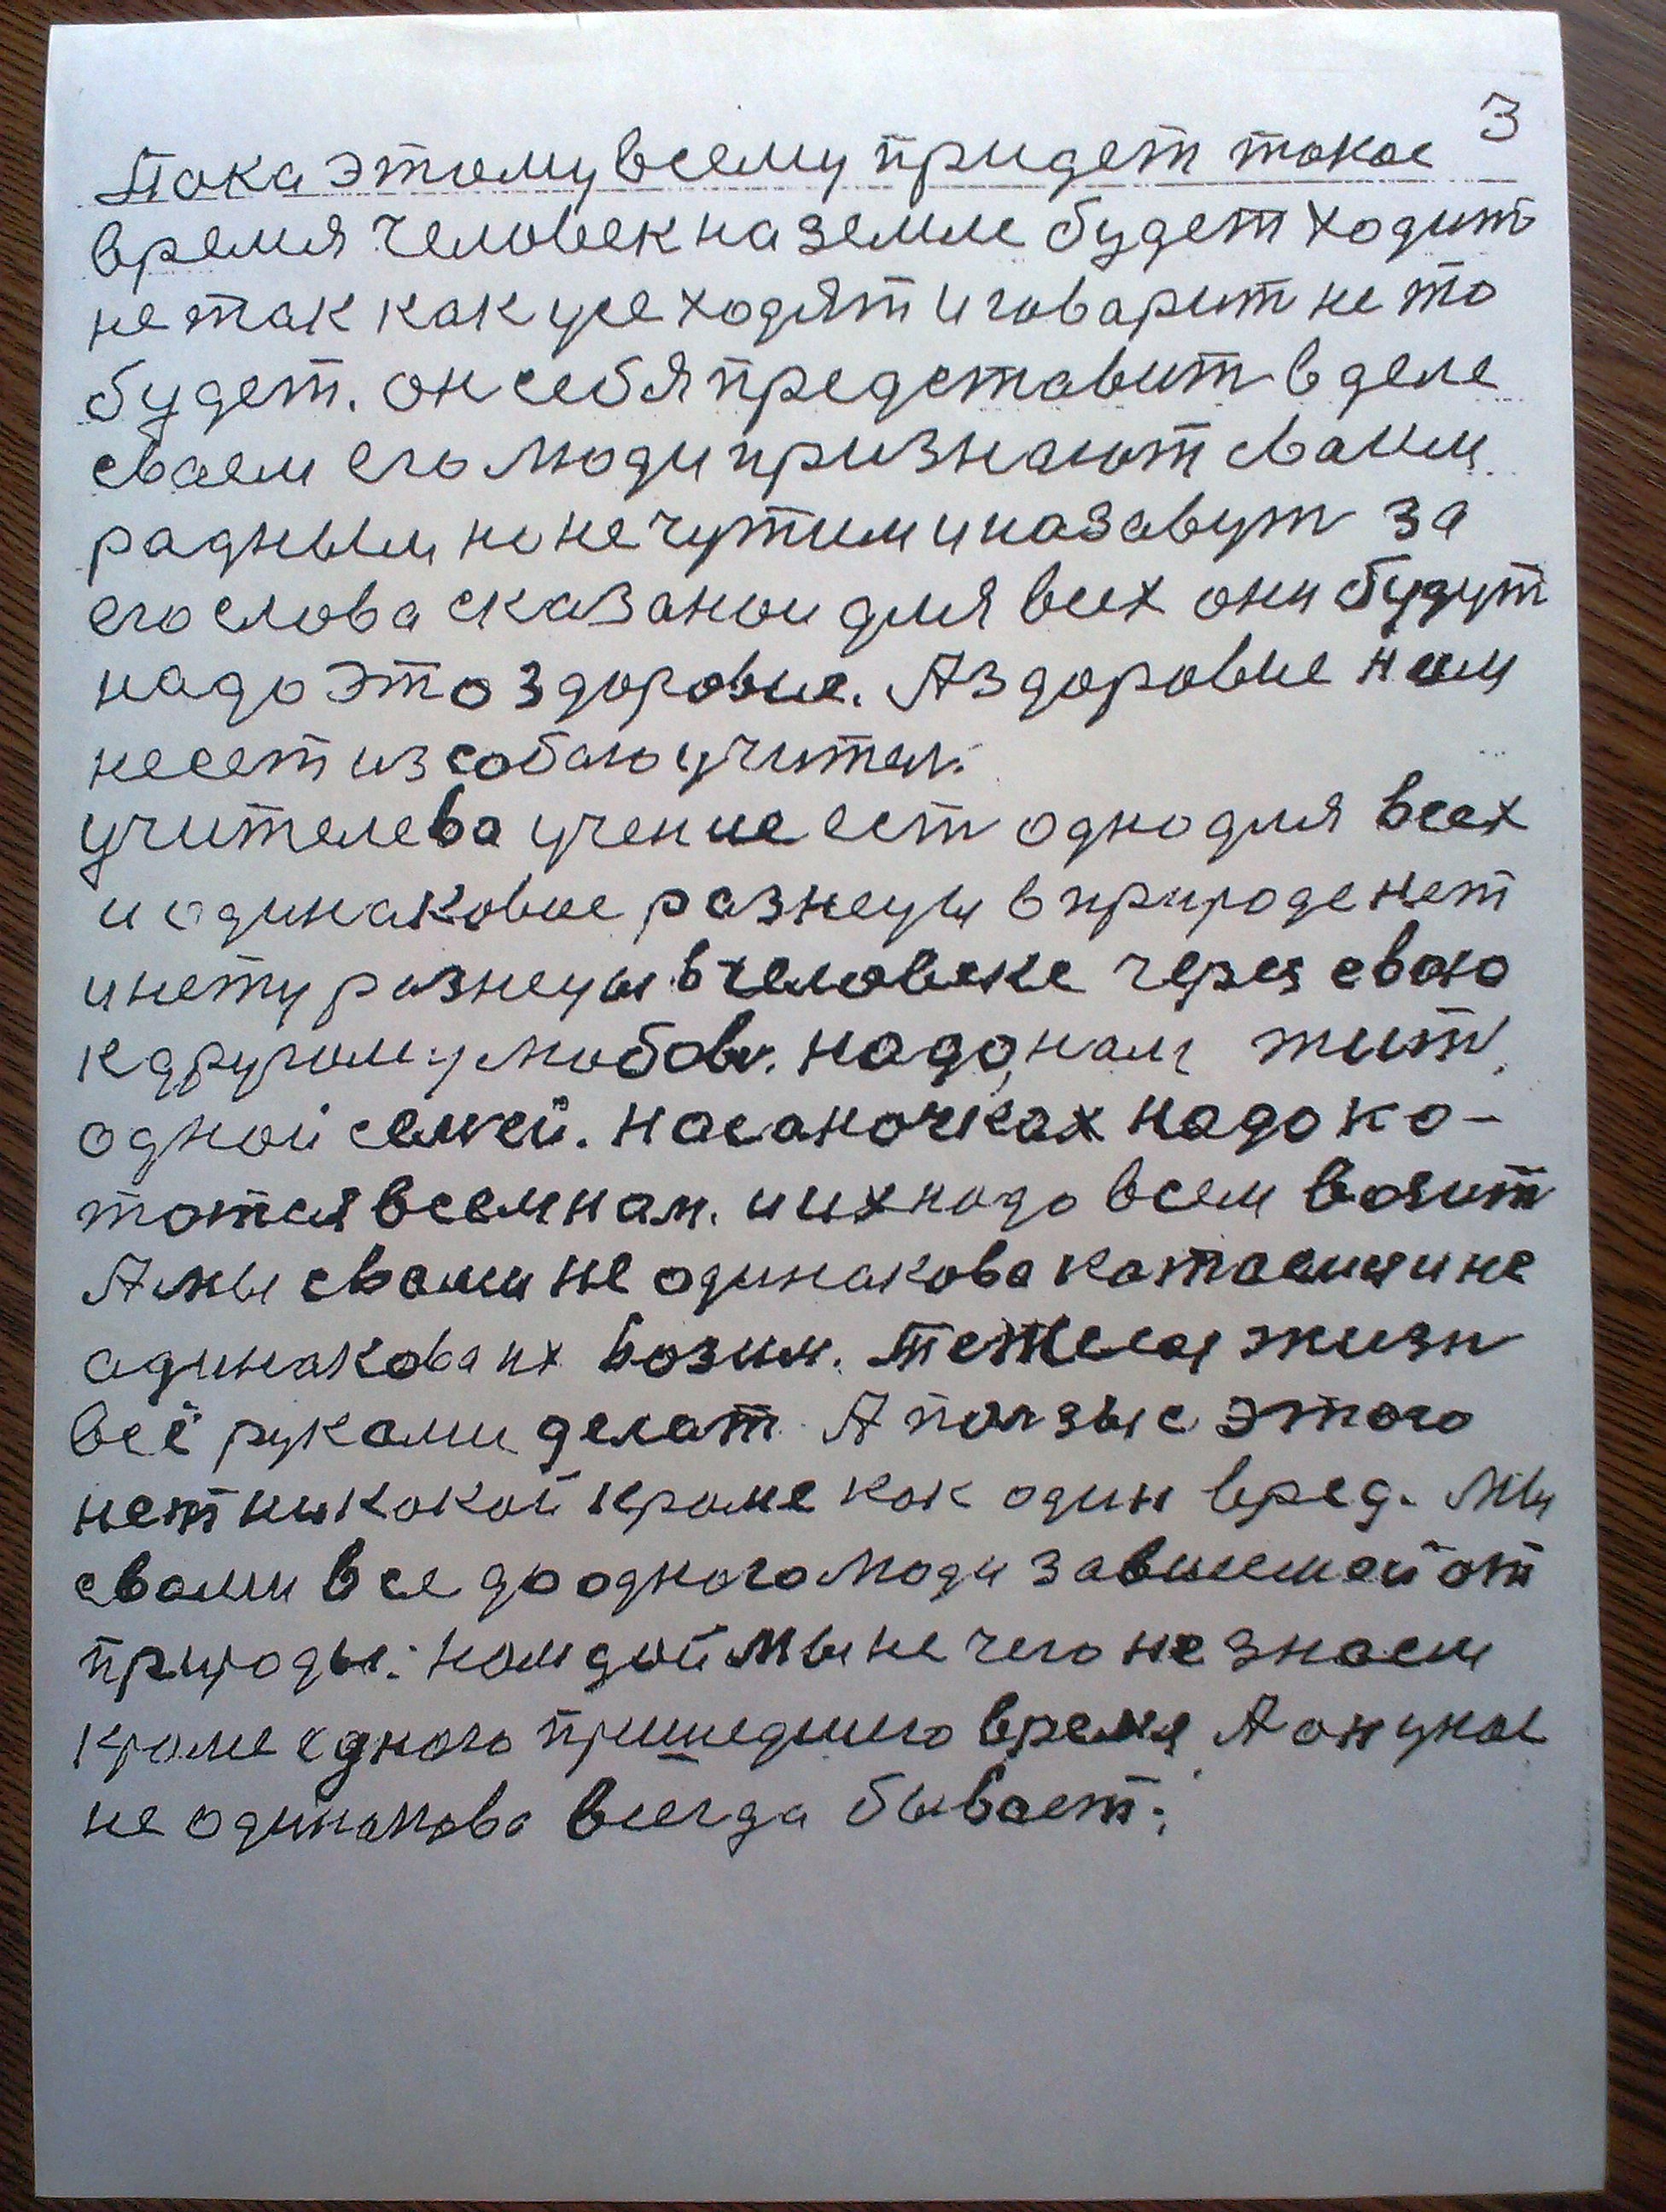 3
Пока этому всему придет токое
время человек на земле будет ходит
не так как усе ходят и говарит не то
будет. он себя представит в деле
сваем его люди признают сваим
радным но не чутим и назавут за
его слова сказаной для всех они будут
надо это здоровие. А здоровие нам
несет из собаю учител.
учителева учение ест одно для всех
и одинаковое разнецы в природе нет
и нету разнецы в человеке через сваю
к другому любов. надо, нам жит,
одной семей. на саночках надо ко-
тотся всем нам. и их надо всем возит
А мы свами не одинакова катаемся и не
адинакова их возим. тежелая жизн
всё руками делат. А ползы с этого
нет никокой кроме как один вред. Мы
свами все до одного люди зависемай от
природы. номдой мы не чего не знаем
кроме одного пришедшего время А он у нас
не одинакова всегда бывает.